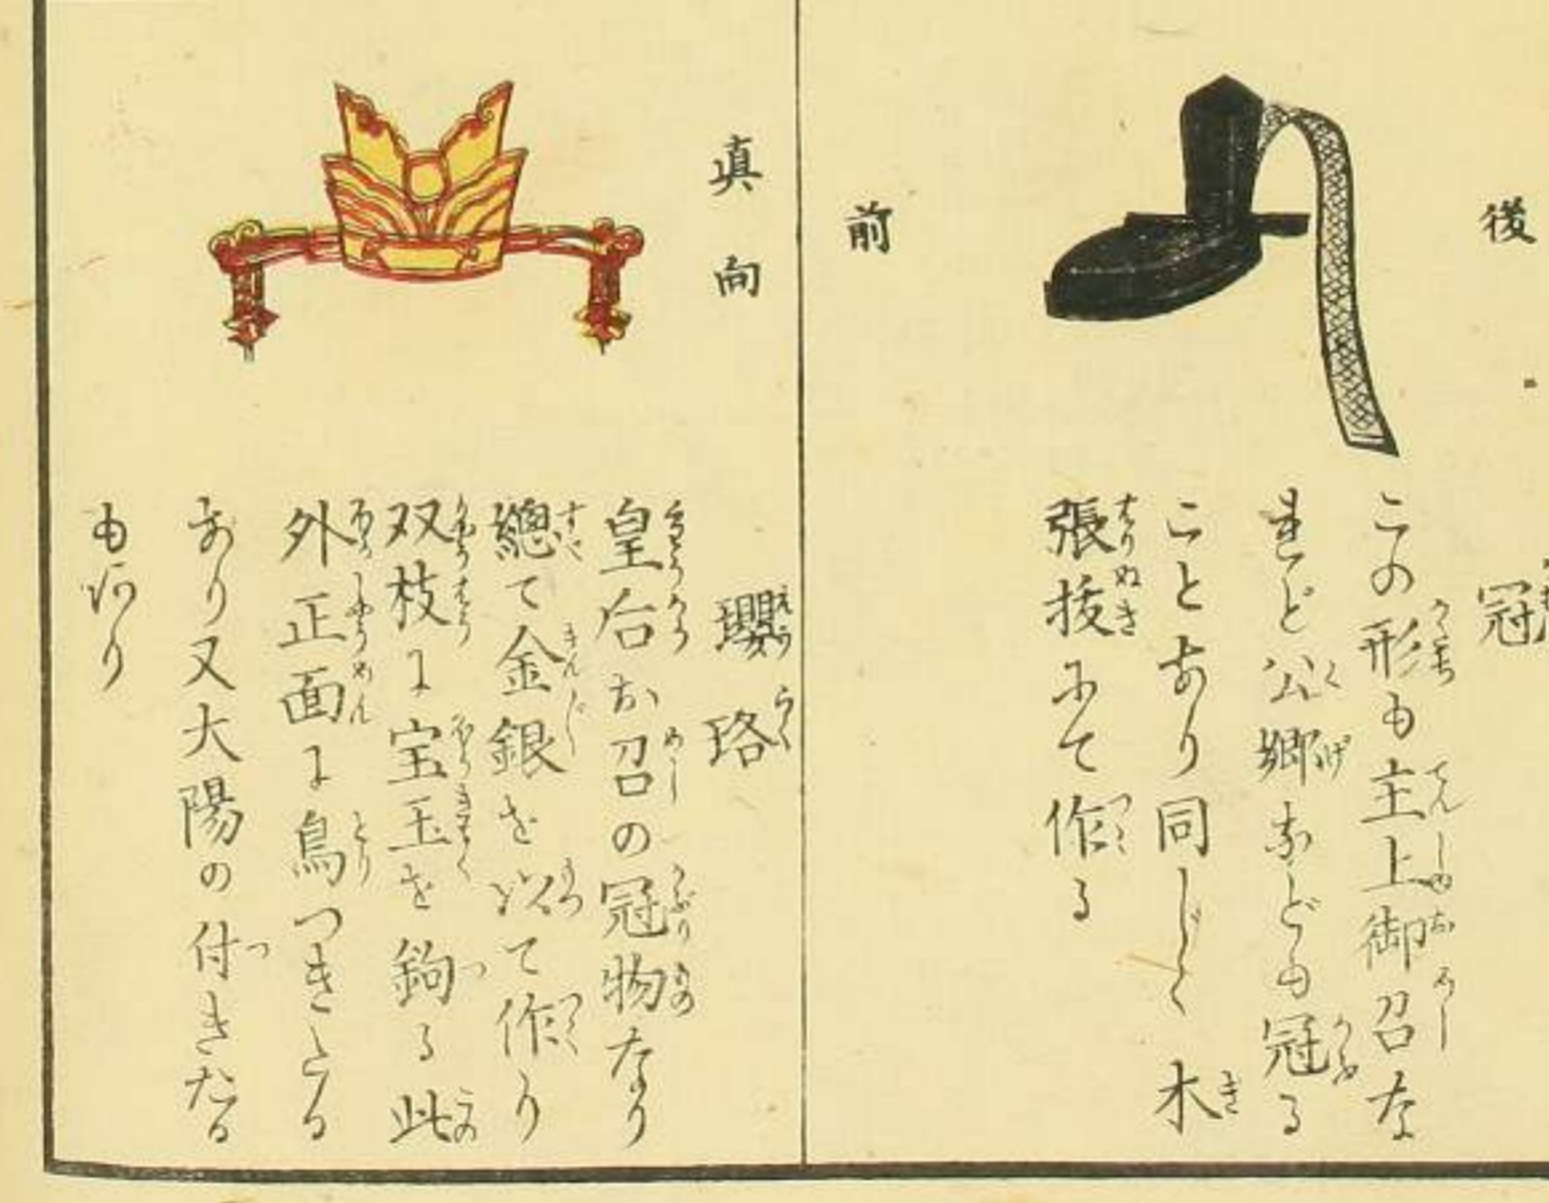 後
前
冠
この形も主上御召な
れど公卿なども冠る
ことあり同じく木
張抜にて作る
真向
瓔珞
皇后お召の冠物なり
總て金銀を以て作り
双枝に宝玉を鉤る此
外正面に鳥つきたる
あり又大陽の付きたる
もあり